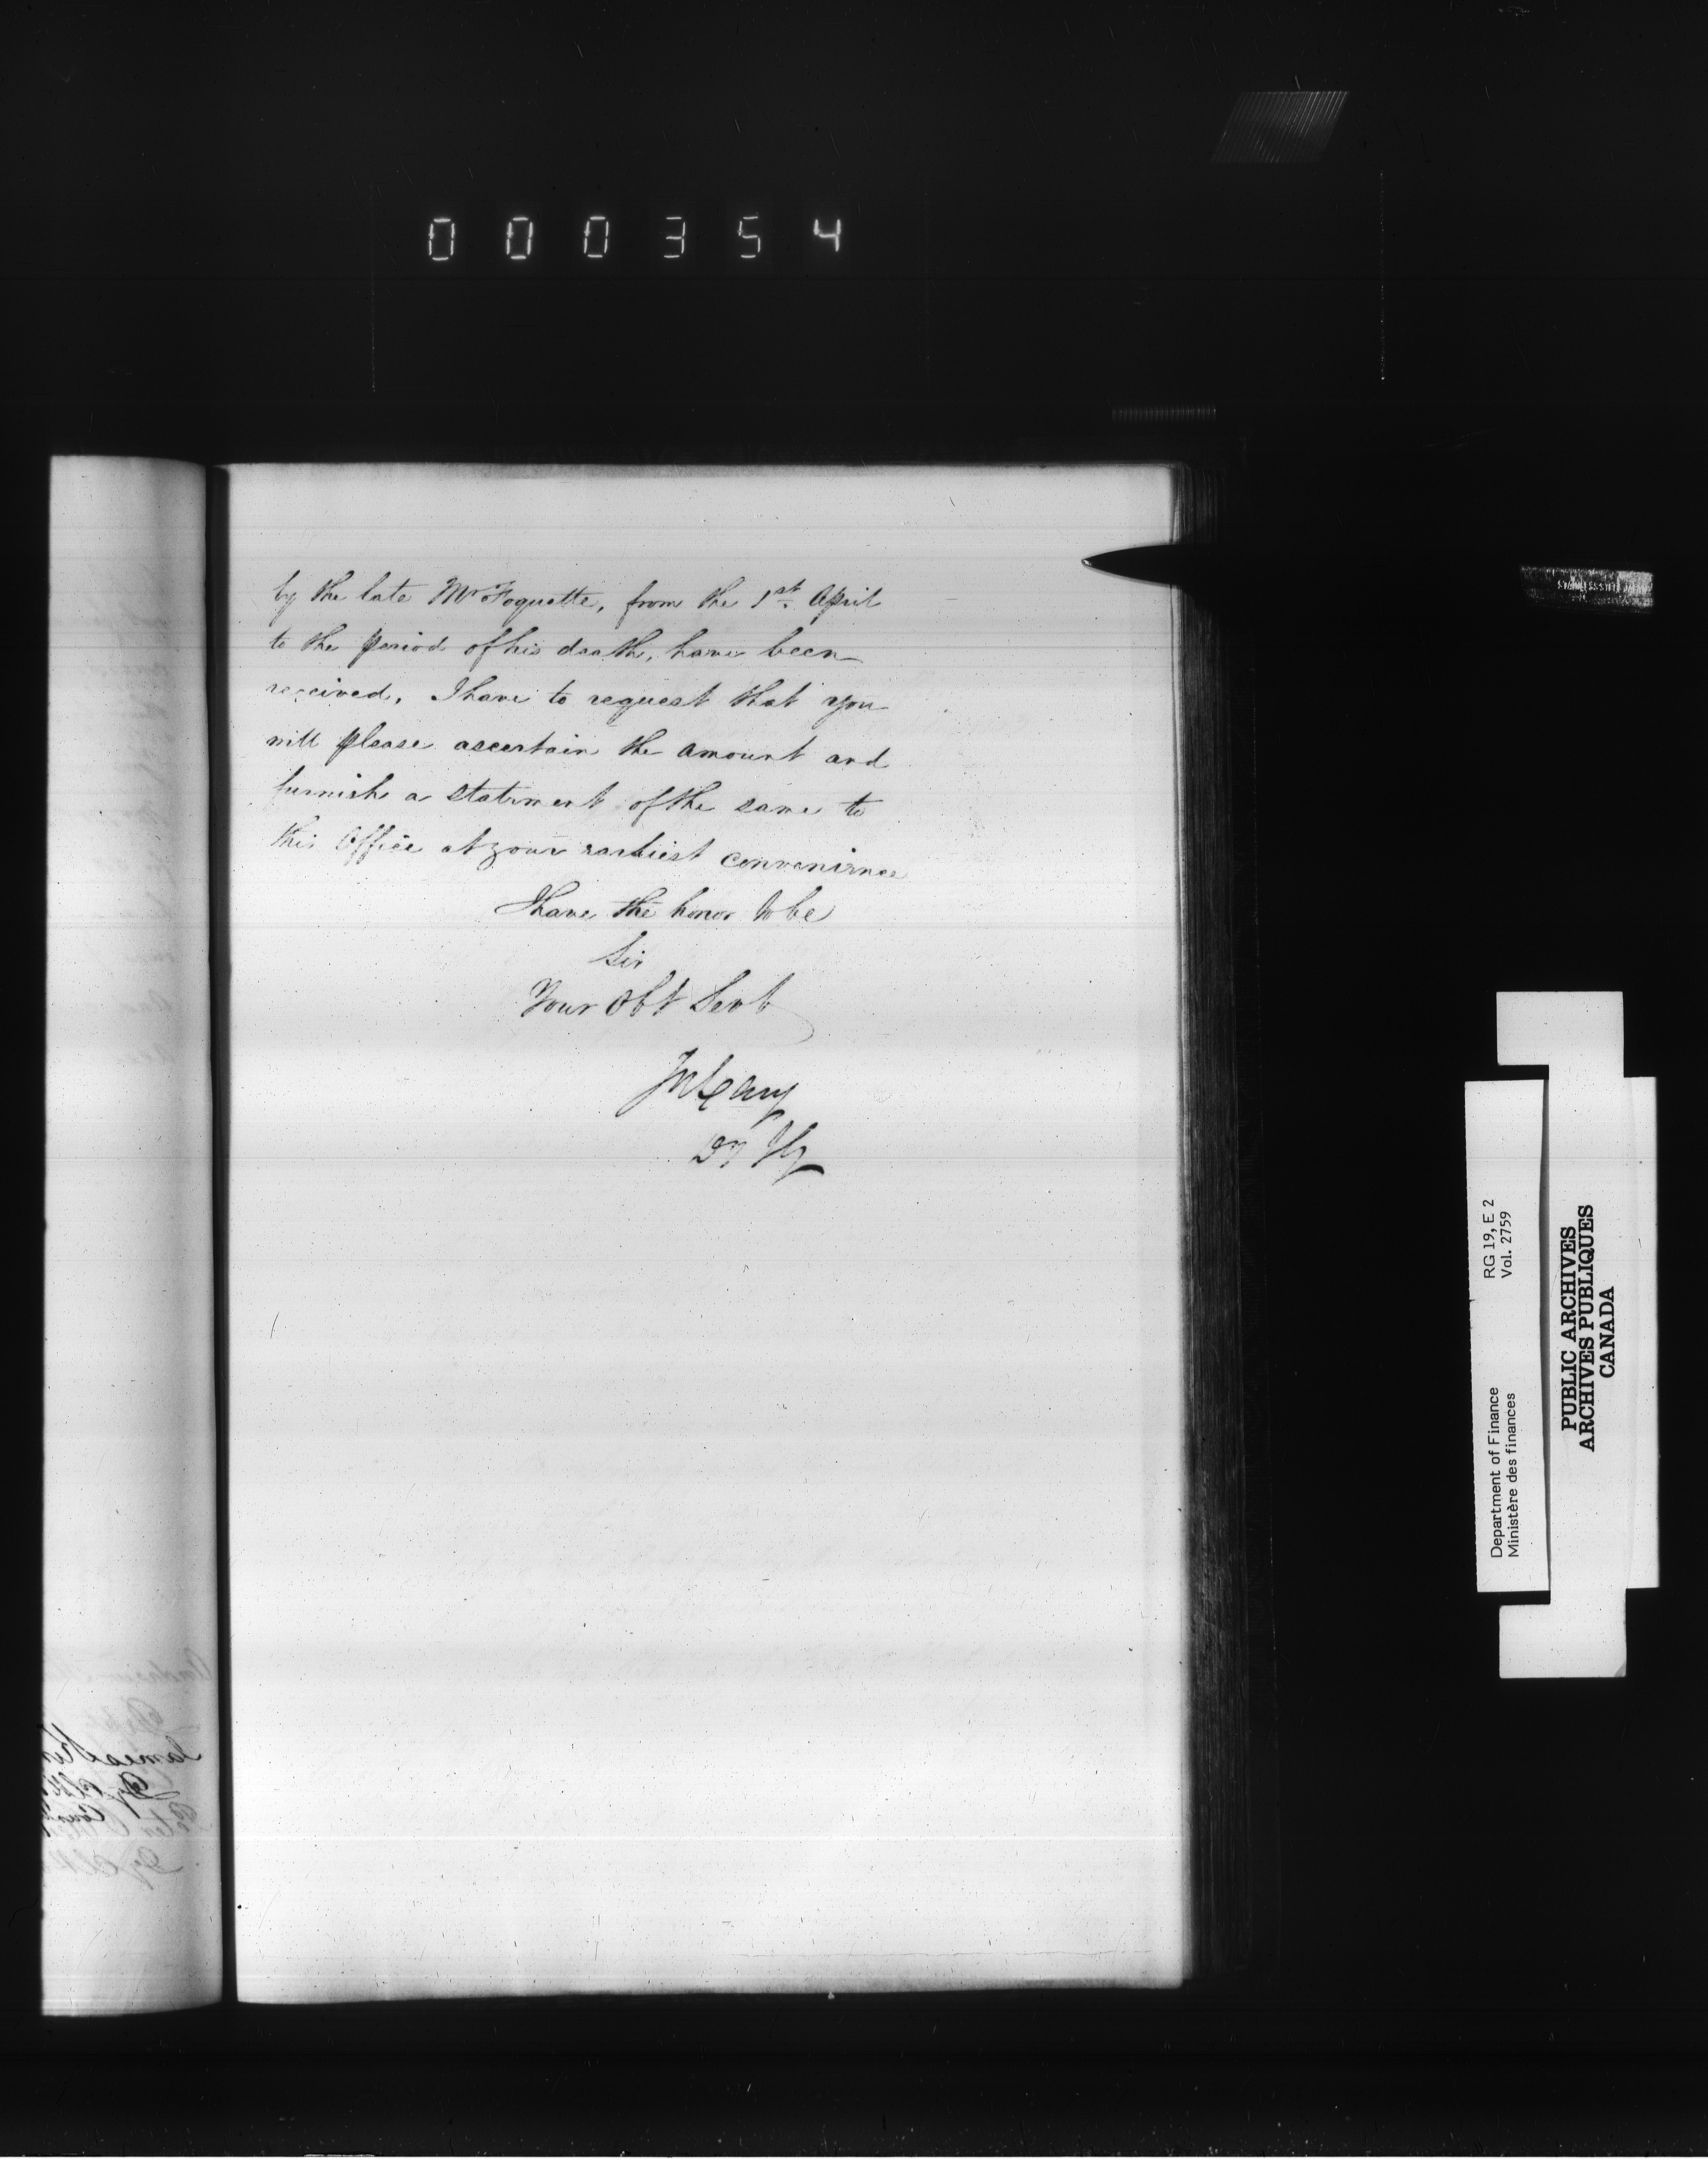 000354
by the late Mr Foquette, from the 1st April
to the period of his death, have been
received, I have to request that you
will please ascertain the amount and
furnish a statement of the same to
this Office at your earliest convenience
I have the honor to be
Sir
Your Obt Servt
Jos Cary
DIG
RG 19, E 2
Vol. 2759
Department of Finance
Ministère des finances
PUBLIC ARCHIVES
ARCHIVES PUBLIQUES
CANADA